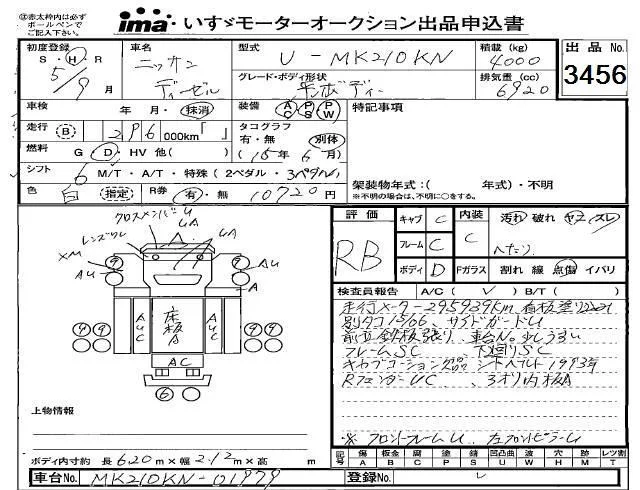 ※赤太枠内は必ず
ボールペンで
ご記入下さい。
ima いすゞモーターオークション出品申込書
初度登録 車名 型式 積載(kg) 出品No.
S・H・R ニッサン U-MK210KN 4000 3456
5/9月 ディーゼル グレード・ボディ形状 排気量(cc)
平ボディー 6920
車検 年 月・抹消 装備 AC PS PW 特記事項
走行 B 296000km「 」 タコグラフ
有・無 別体
燃料 G D・HV 他( ) (15年6月)
シフト 6 M/T・A/T・特殊(2ペダル・3ペダル)
色 白 指定 R券 有・無 10720円
架装物年式:( 年式)・不明
※不明の場合は、不明に○をする。
評価 キャブ C 内装 汚れ 破れ ヤニ スレ
RB フレーム C C へたり
ボディ D Fガラス 割れ 線 点傷 イバリ
クロスメンバーU
UA
レンズワレ A UA
XM
AU AU
9 9 9 9
AUC 床板A AUC
AC
6
検査員報告 A/C( レ ) B/T( )
走行メーター295939km 看板塗り
別タコ15/06、サイドガードU
前立鉄板張り 車台No.少しうすい
フレームSC 下廻りSC
キャブコーション欠品 シートベルト1993年
RフェンダーUC、3オリ内板A
※フロントフレームU 左フロントピラーU
上物情報
記号 傷 板金 腐 塗 錆 凹 凸凹曲 波 穴 跡 レツ割
A B C P S E U W H M T
ボディ内寸約 長6.20m×幅2.12m×高 m
車台No. MK210KN-01979 登録No.